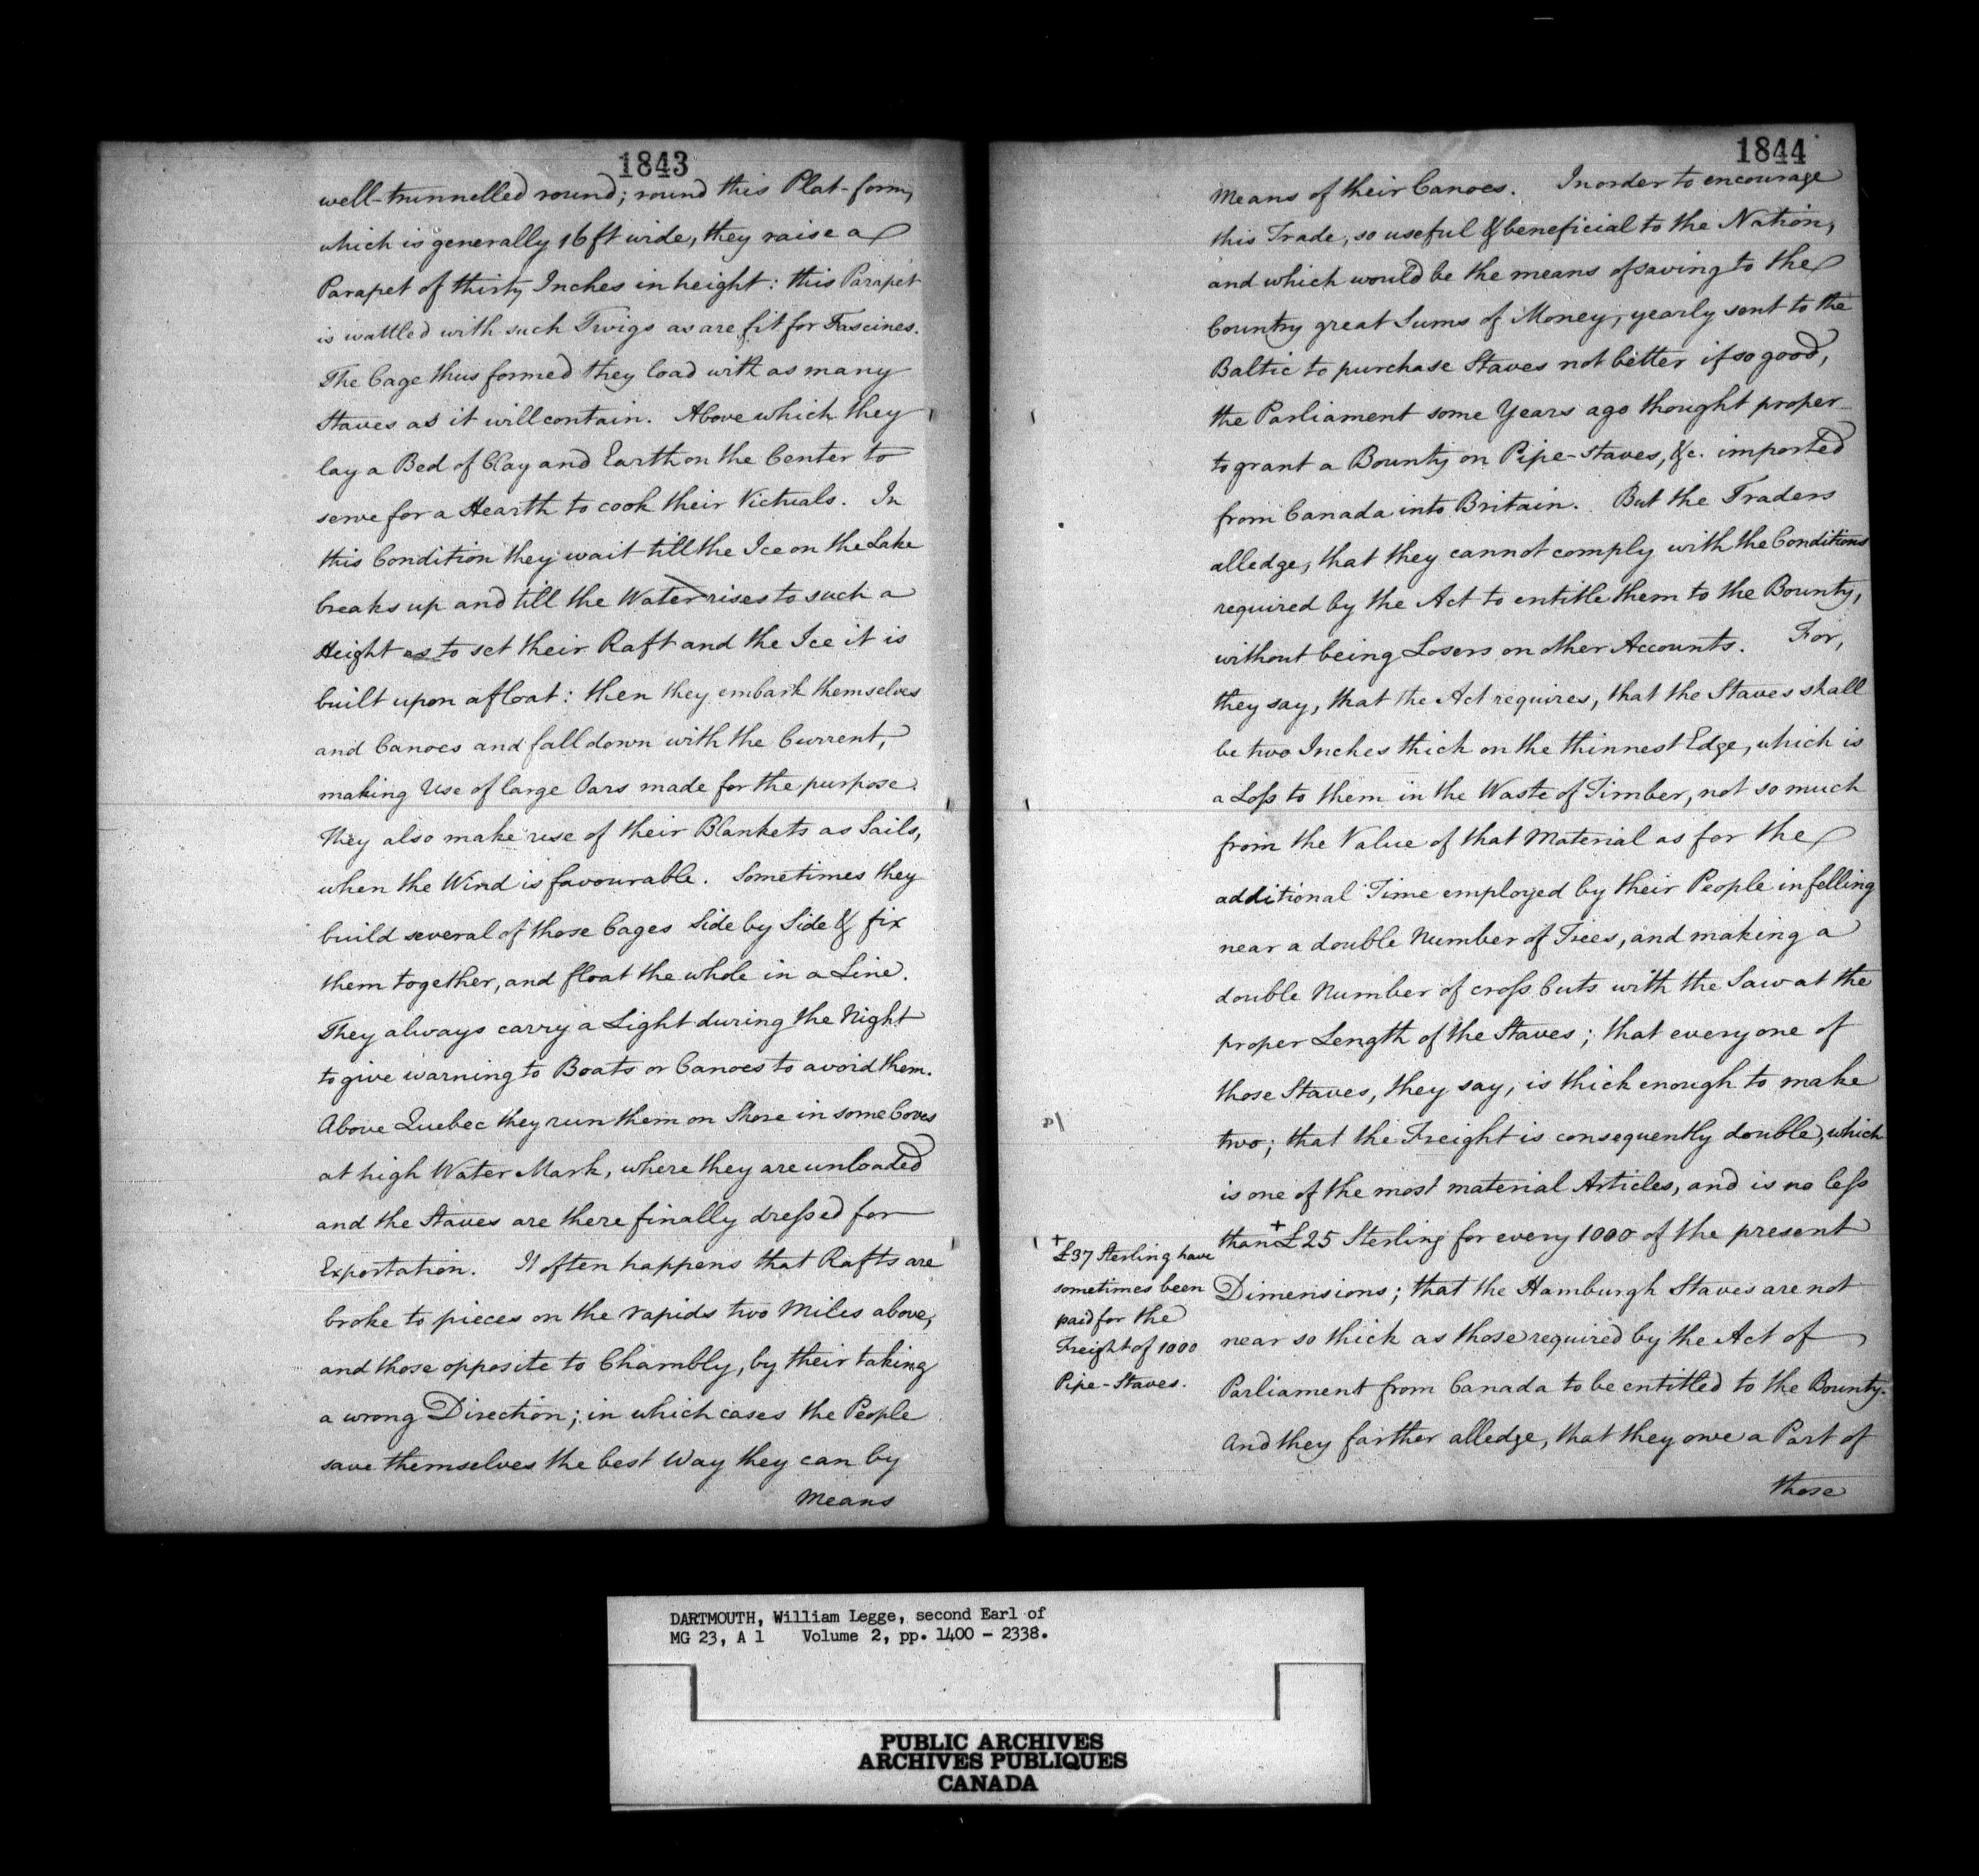 1843
well-trunnelled round; round this Plat-form,
which is generally 16 ft wide, they raise a
Parapet of thirty Inches in height: this Parapet
is wattled with such Twigs as are fit for Fascines.
The Cage thus formed they load with as many
Staves as it will contain. Above which they
lay a Bed of Clay and Earth on the Center to
serve for a Hearth to cook their Victuals. In
this Condition they wait till the Ice on the Lake
breaks up and till the Water rises to such a
Height as to set their Raft and the Ice it is
built upon afloat: then they embark themselves
and Canoes and fall down with the Current,
making Use of large Oars made for the purpose.
They also make use of their Blankets as Sails,
when the Wind is favourable. Sometimes they
build several of those Cages Side by Side & fix
them together, and float the whole in a Line.
They always carry a Light during the Night
to give warning to Boats or Canoes to avoid them.
Above Quebec they run them on Shore in some Coves
at high Water Mark, where they are unloaded
and the Staves are there finally dressed for
Exportation. It often happens that Rafts are
broke to pieces on the rapids two Miles above,
and those opposite to Chambly, by their taking
a wrong Direction; in which cases the People
save themselves the best Way they can by
Means
1844
Means of their Canoes. In order to encourage
this Trade, so useful & beneficial to the Nation,
and which would be the means of saving to the
Country great Sums of Money, yearly sent to the
Baltic to purchase Staves not better if so good,
the Parliament some Years ago thought proper
to grant a Bounty on Pipe-Staves, &c. imported
from Canada into Britain. But the Traders
alledge, that they cannot comply with the Conditions
required by the Act to entitle them to the Bounty,
without being Losers on other Accounts. For,
they say, that the Act requires, that the Staves shall
be two Inches thick on the thinnest Edge, which is
a Loss to them in the Waste of Timber, not so much
from the Value of that Material as for the
additional Time employed by their People in felling
near a double Number of Trees, and making a
double Number of cross Cuts with the Saw at the
proper Length of the Staves; that every one of
those Staves, they say, is thick enough to make
two; that the Freight is consequently double, which
is one of the most material Articles, and is no less
than + £25 Sterling for every 1000 of the present
Dimensions; that the Hamburgh Staves are not
near so thick as those required by the Act of
Parliament from Canada to be entitled to the Bounty.
And they farther alledge, that they owe a Part of
those
+
£37 Sterling have
sometimes been
paid for the
Freight of 1000
Pipe-Staves.
DARTMOUTH, William Legge, second Earl of
MG 23, A 1 Volume 2, pp. 1400 - 2338.
PUBLIC ARCHIVES
ARCHIVES PUBLIQUES
CANADA